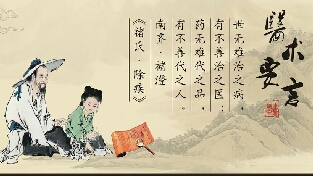 世无难治之病，
有不善治之医；
药无难代之品，
有不善代之人。
南齐·褚澄
《褚氏·除疾》